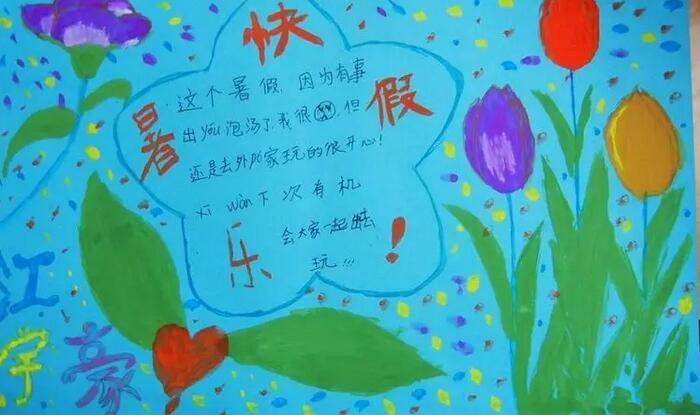 快
暑
假
这个暑假,因为有事
出you泡汤了,我很 ,但
还是去外po家玩的很开心!
xī wàn下次有机
会大家一起去
玩!!!
乐
!
江
宇豪